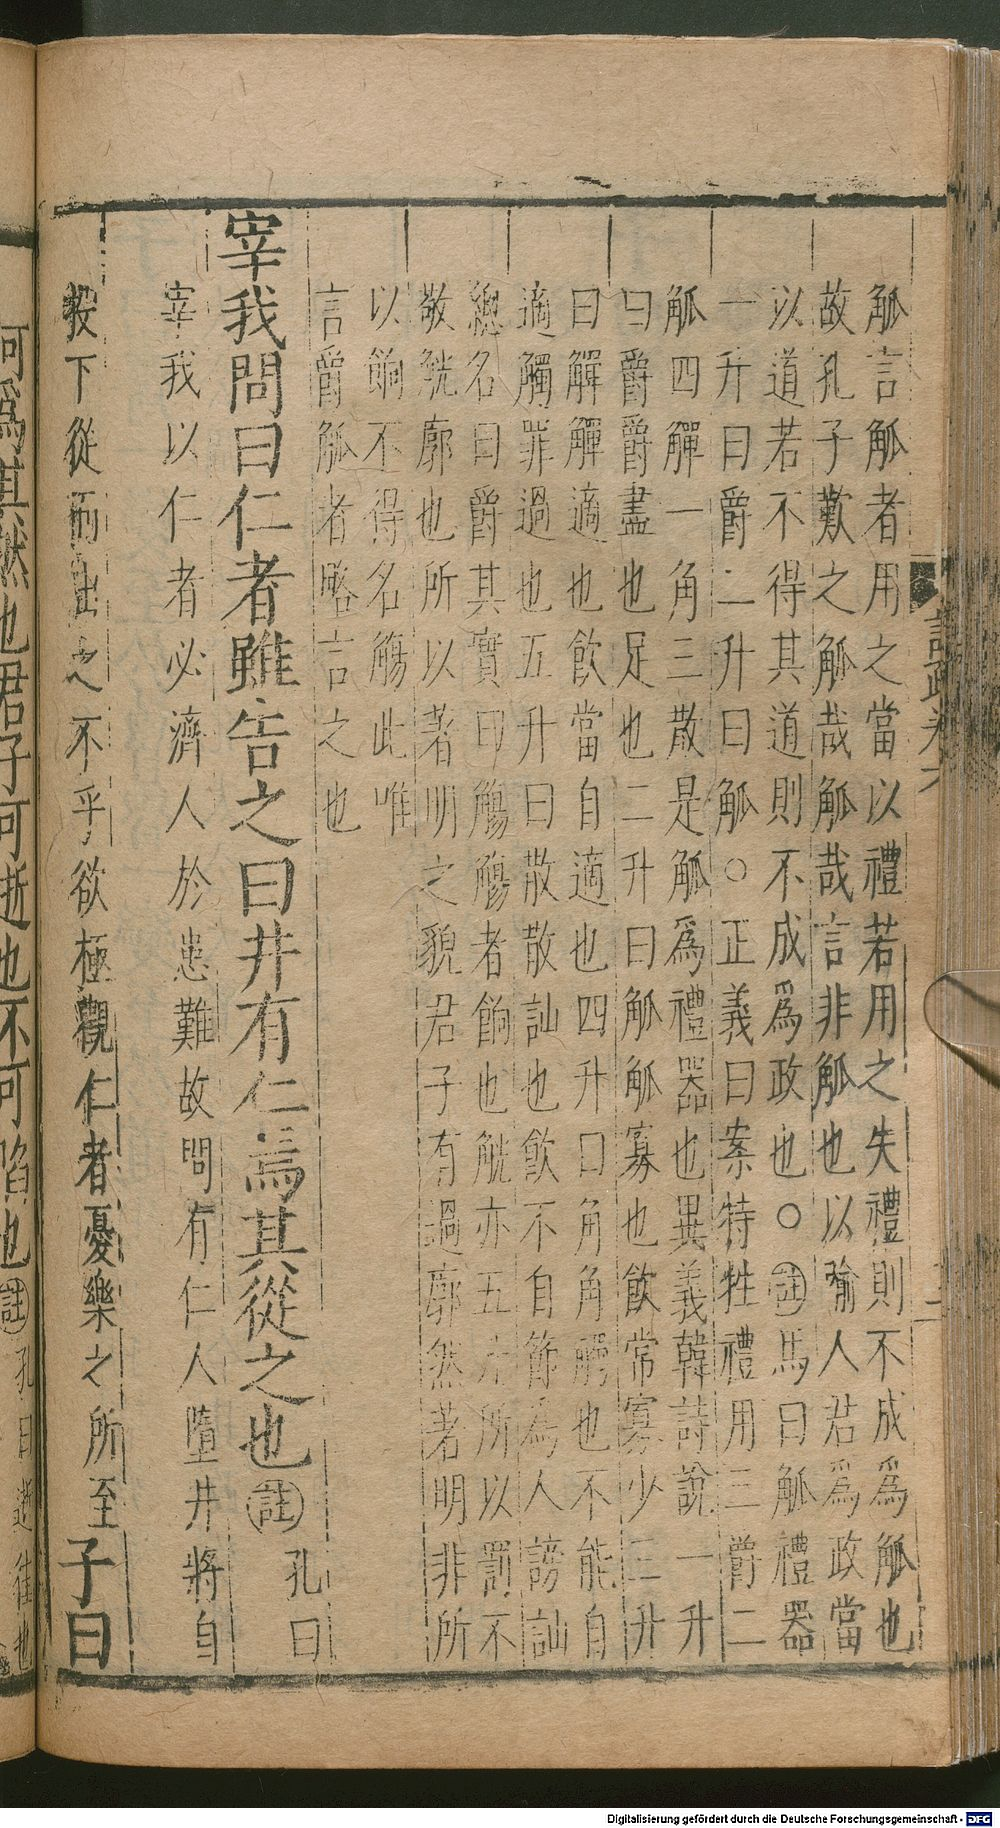 觚言觚者用之當以禮若用之失禮則不成爲觚也
故孔子歎之觚哉觚哉言非觚也以喻人君爲政當
以道若不得其道則不成爲政也○註馬曰觚禮器
一升曰爵二升曰觚○正義曰案特牲禮用三爵二
觚四觶一角三散是觚爲禮器也異義韓詩說一升
曰爵爵盡也足也二升曰觚觚寡也飲常寡少三升
曰觶觶適也飲當自適也四升曰角角觸也不能自
適觸罪過也五升曰散散訕也飲不自節爲人謗訕
總名曰爵其實曰觴觴者餉也觥亦五升所以罰不
敬觥廓也所以著明之貌君子有過廓然著明非所
以餉不得名觴此唯
言爵觚者略言之也
宰我問曰仁者雖告之曰井有仁焉其從之也註孔曰
宰我以仁者必濟人於患難故問有仁人墮井將自
投下從而出之不乎欲極觀仁者憂樂之所至子曰
何爲其然也君子可逝也不可陷也註孔曰逝往也
Digitalisierung gefördert durch die Deutsche Forschungsgemeinschaft - DFG